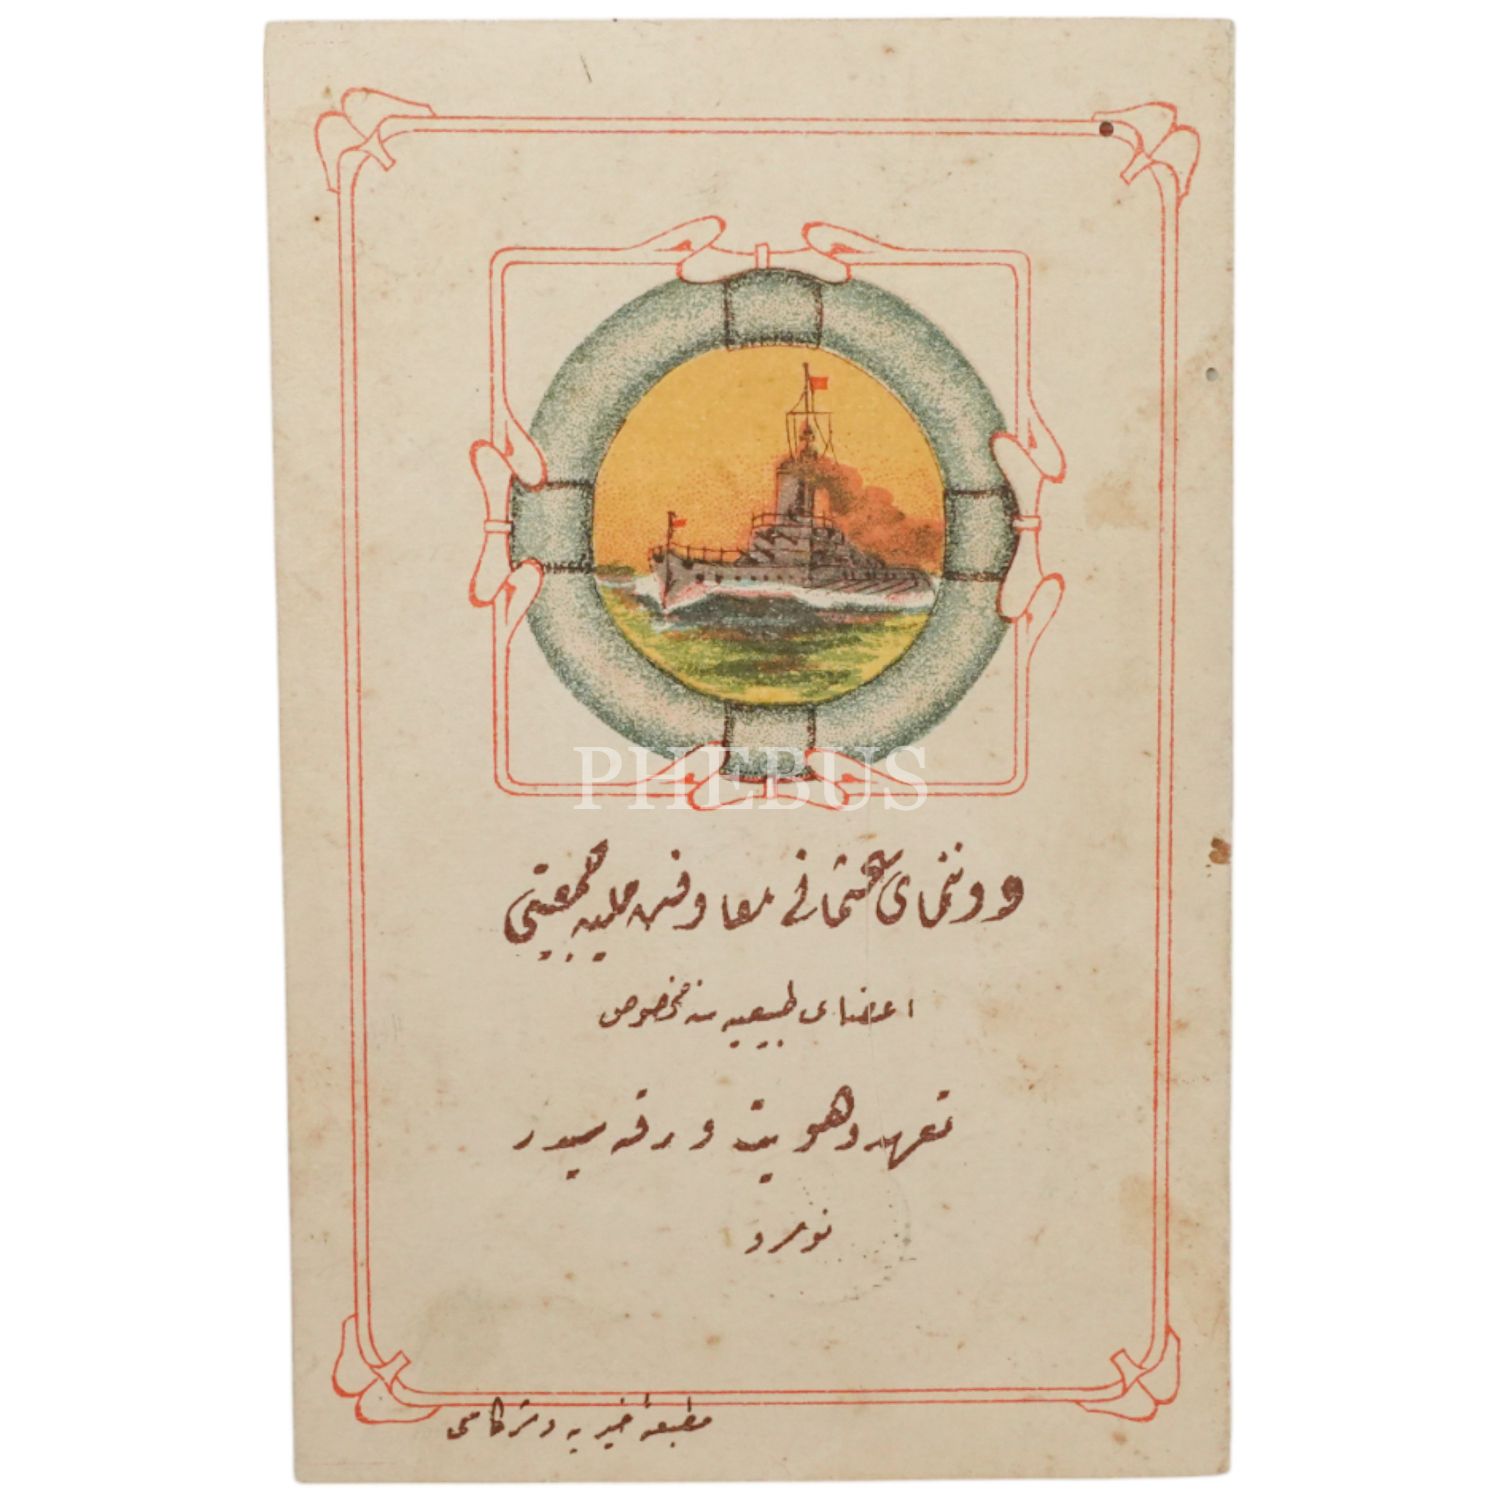 PHEBUS
دوننمای عثمانی معاونت ملیه جمعیتی
اعضای طبیعیه سنه مخصوص
تعهد و هویت ورقه سیدر
نومرو
مطبعهٔ خیریه و شرکاسی